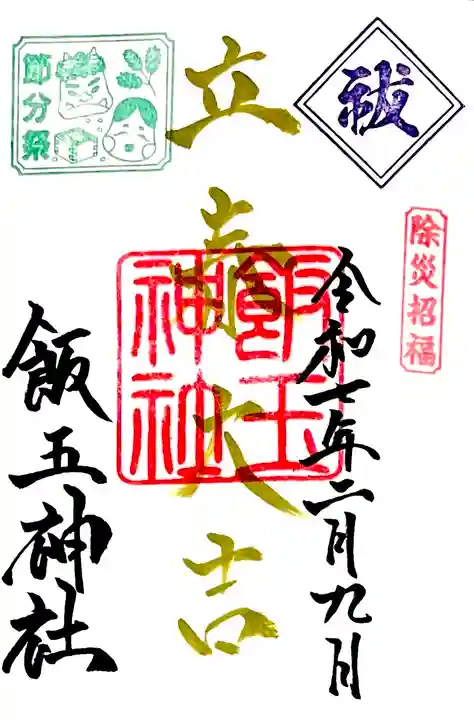 祓
除災招福
令和七年二月九日
立春大吉
飯玉神社
節分祭
飯玉神社